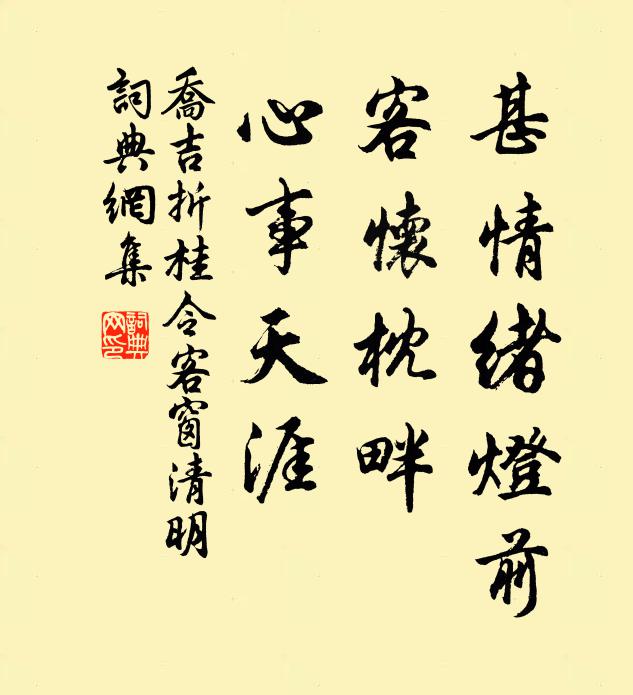 甚情緒燈前
客懷枕畔
心事天涯
喬吉折桂令客窗清明
詞典網集
詞典网印